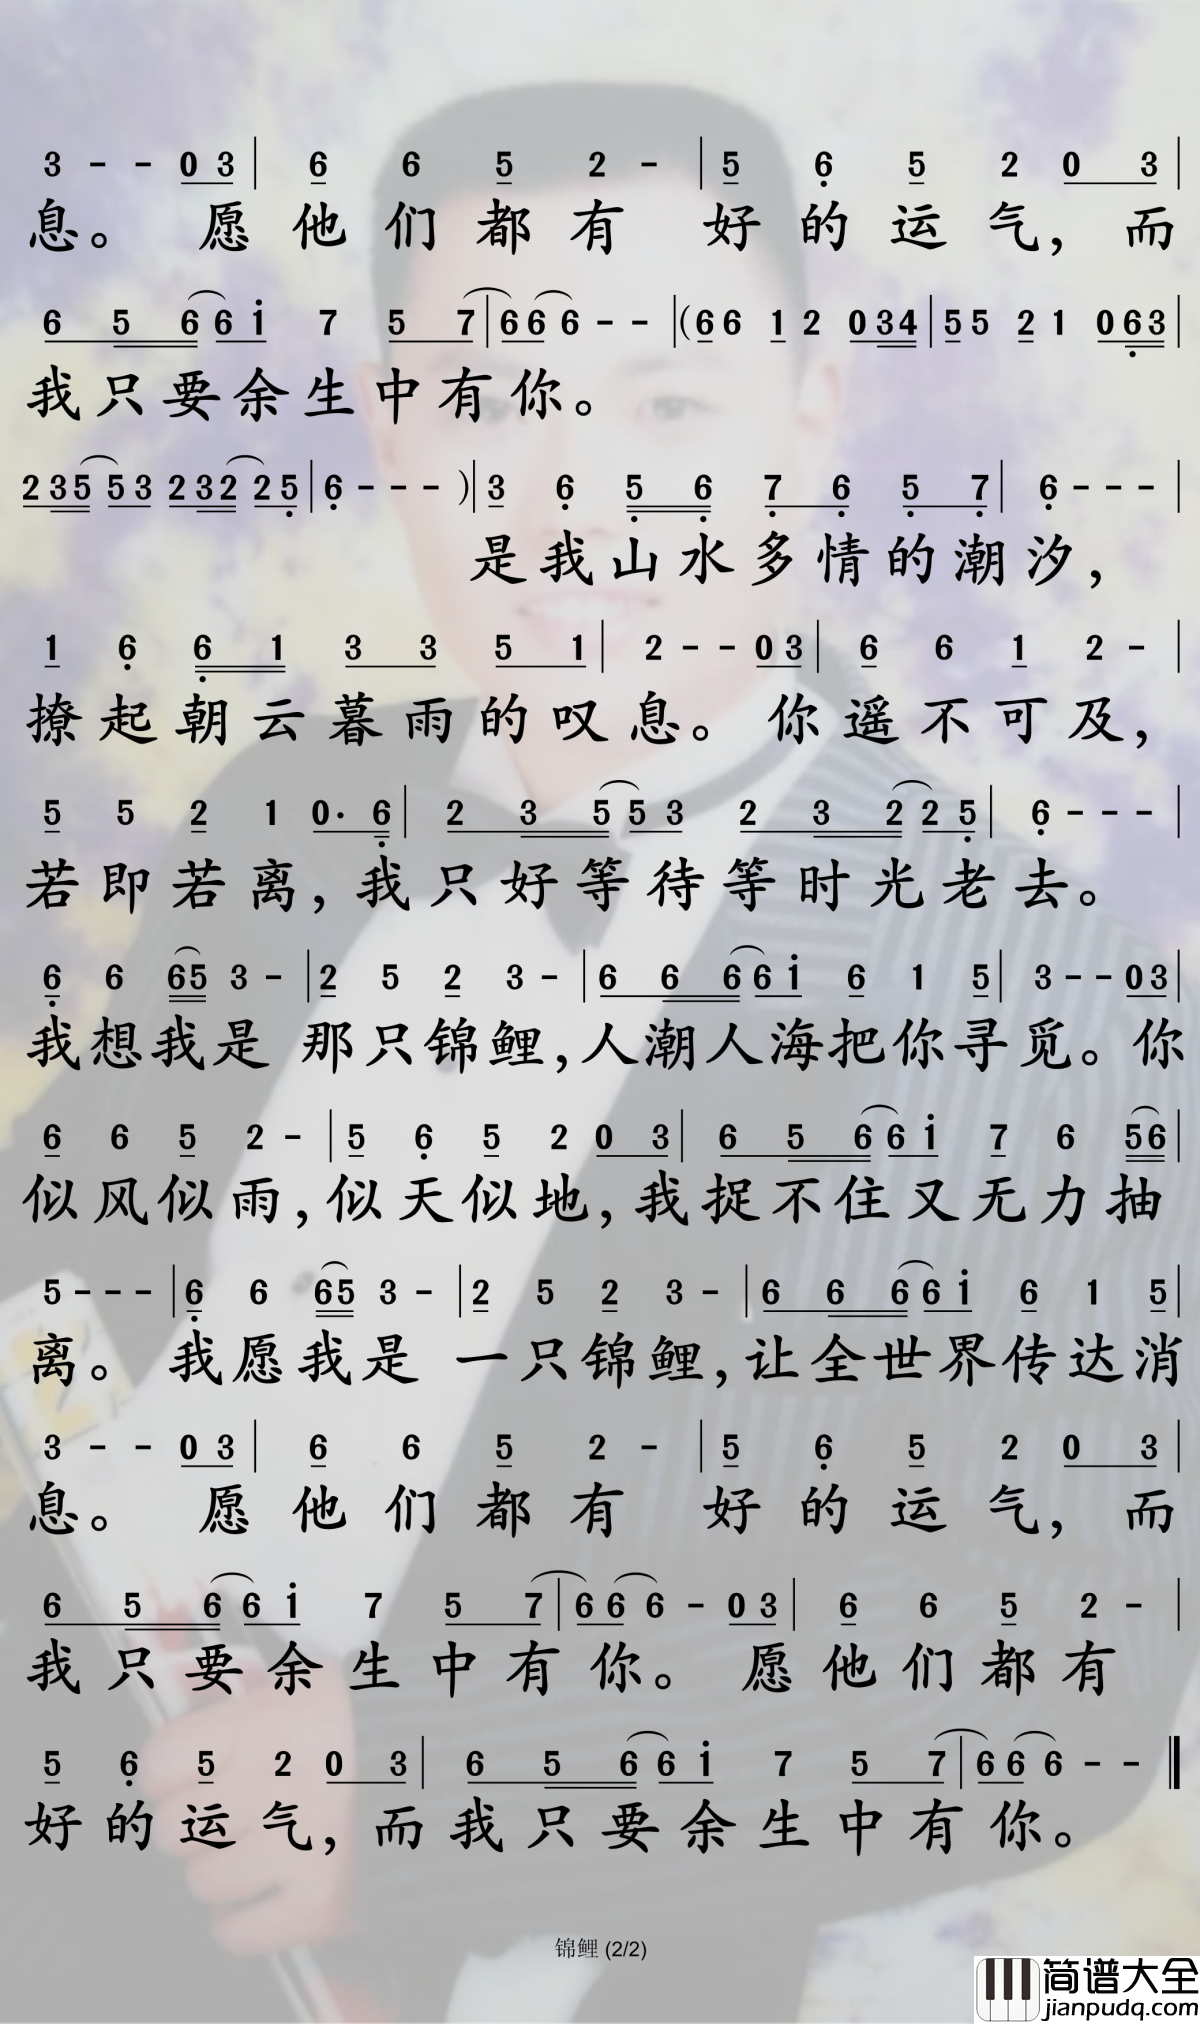 3 - - 0 3 | 6 6 5 2 - | 5 6 5 2 0 3 |
息。 愿他们都有 好的运气，而
6 5 6 6 i 7 5 7 | 6 6 6 - - | (6 6 1 2 0 3 4 | 5 5 2 1 0 6 3 |
我只要余生中有你。
2 3 5 5 3 2 3 2 2 5 | 6 - - - ) | 3 6 5 6 7 6 5 7 | 6 - - - |
是我山水多情的潮汐，
1 6 6 1 3 3 5 1 | 2 - - 0 3 | 6 6 1 2 - |
撩起朝云暮雨的叹息。你遥不可及，
5 5 2 1 0· 6 | 2 3 5 5 3 2 3 2 2 5 | 6 - - - |
若即若离，我只好等待等时光老去。
6 6 6 5 3 - | 2 5 2 3 - | 6 6 6 6 i 6 1 5 | 3 - - 0 3 |
我想我是 那只锦鲤，人潮人海把你寻觅。你
6 6 5 2 - | 5 6 5 2 0 3 | 6 5 6 6 i 7 6 5 6 |
似风似雨，似天似地，我捉不住又无力抽
5 - - - | 6 6 6 5 3 - | 2 5 2 3 - | 6 6 6 6 i 6 1 5 |
离。我愿我是 一只锦鲤，让全世界传达消
3 - - 0 3 | 6 6 5 2 - | 5 6 5 2 0 3 |
息。 愿他们都有 好的运气，而
6 5 6 6 i 7 5 7 | 6 6 6 - 0 3 | 6 6 5 2 - |
我只要余生中有你。愿他们都有
5 6 5 2 0 3 | 6 5 6 6 i 7 5 7 | 6 6 6 - - ‖
好的运气，而我只要余生中有你。
锦鲤 (2/2)
简谱大全
jianpudq.com